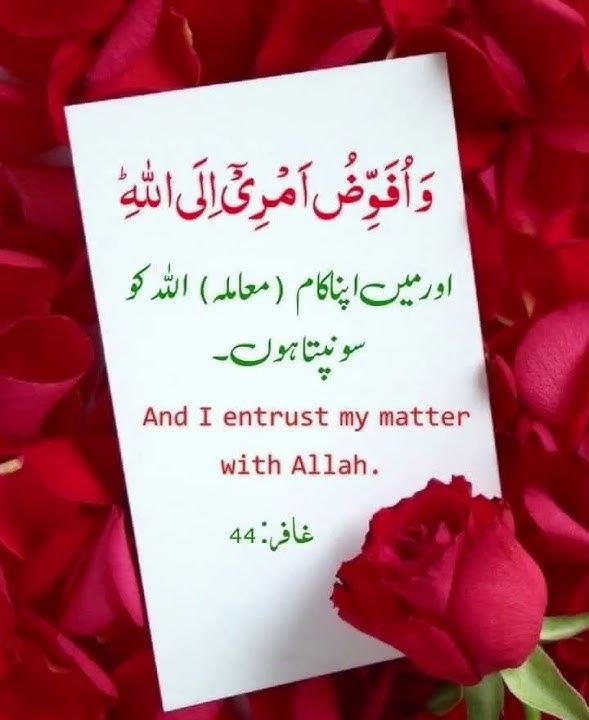 وَاُفَوِّضُ اَمْرِیْۤ اِلَی اللّٰهِؕ
اور میں اپنا کام (معاملہ) اللہ کو
سونپتا ہوں۔
And I entrust my matter
with Allah.
غافر:44